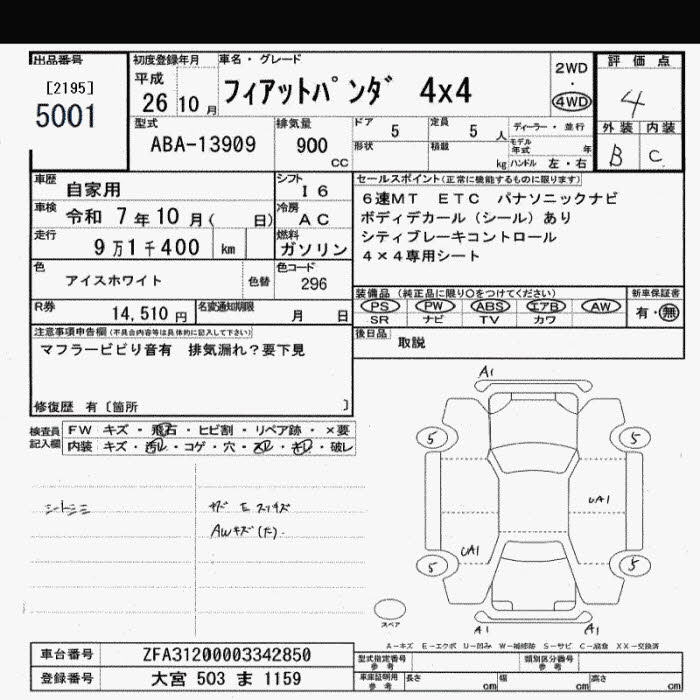 出品番号
[2195]
5001
初度登録年月
平成
26 10 月
車名・グレード
フィアットパンダ 4x4
2WD
・
4WD
評価点
4
外装 内装
B C
型式
ABA-13909
排気量
900
CC
ドア
5
定員
5 人
形状
積載
kg
ディーラー・並行
モデル年式 年
ハンドル 左・右
車歴
自家用
シフト
I6
セールスポイント(正常に機能するものに限ります)
6速MT ETC パナソニックナビ
ボディデカール(シール)あり
シティブレーキコントロール
4×4専用シート
車検
令和 7年10月( 日)
冷房
AC
走行
9万1千400 km
燃料
ガソリン
色
アイスホワイト
色替
色コード
296
装備品 (純正品に限り〇をつけてください)
PS PW ABS エアB AW
SR ナビ TV カワ
新車保証書
有・無
R券
14,510円
名変通知期限
月 日
後日品
取説
注意事項申告欄(不具合内容等は具体的に記入して下さい)
マフラービビリ音有 排気漏れ?要下見
修復歴 有〔箇所 〕
検査員
記入欄
FW キズ・飛石・ヒビ割・リペア跡・×要
内装 キズ・汚レ・コゲ・穴・スレ・キレ・破レ
シートシミ
AWキズ(大).
A1
5
5
UA1
UA1
5
5
スペア
A1
A1
A-キズ E-エクボ U-凹み W-補修跡 S-サビ C-腐食 XX-交換済
車台番号
ZFA31200003342850
登録番号
大宮 503 ま 1159
型式指定番号
参考
類別区分番号
参考
車庫証明用
参考
長さ cm
幅 cm
高さ cm